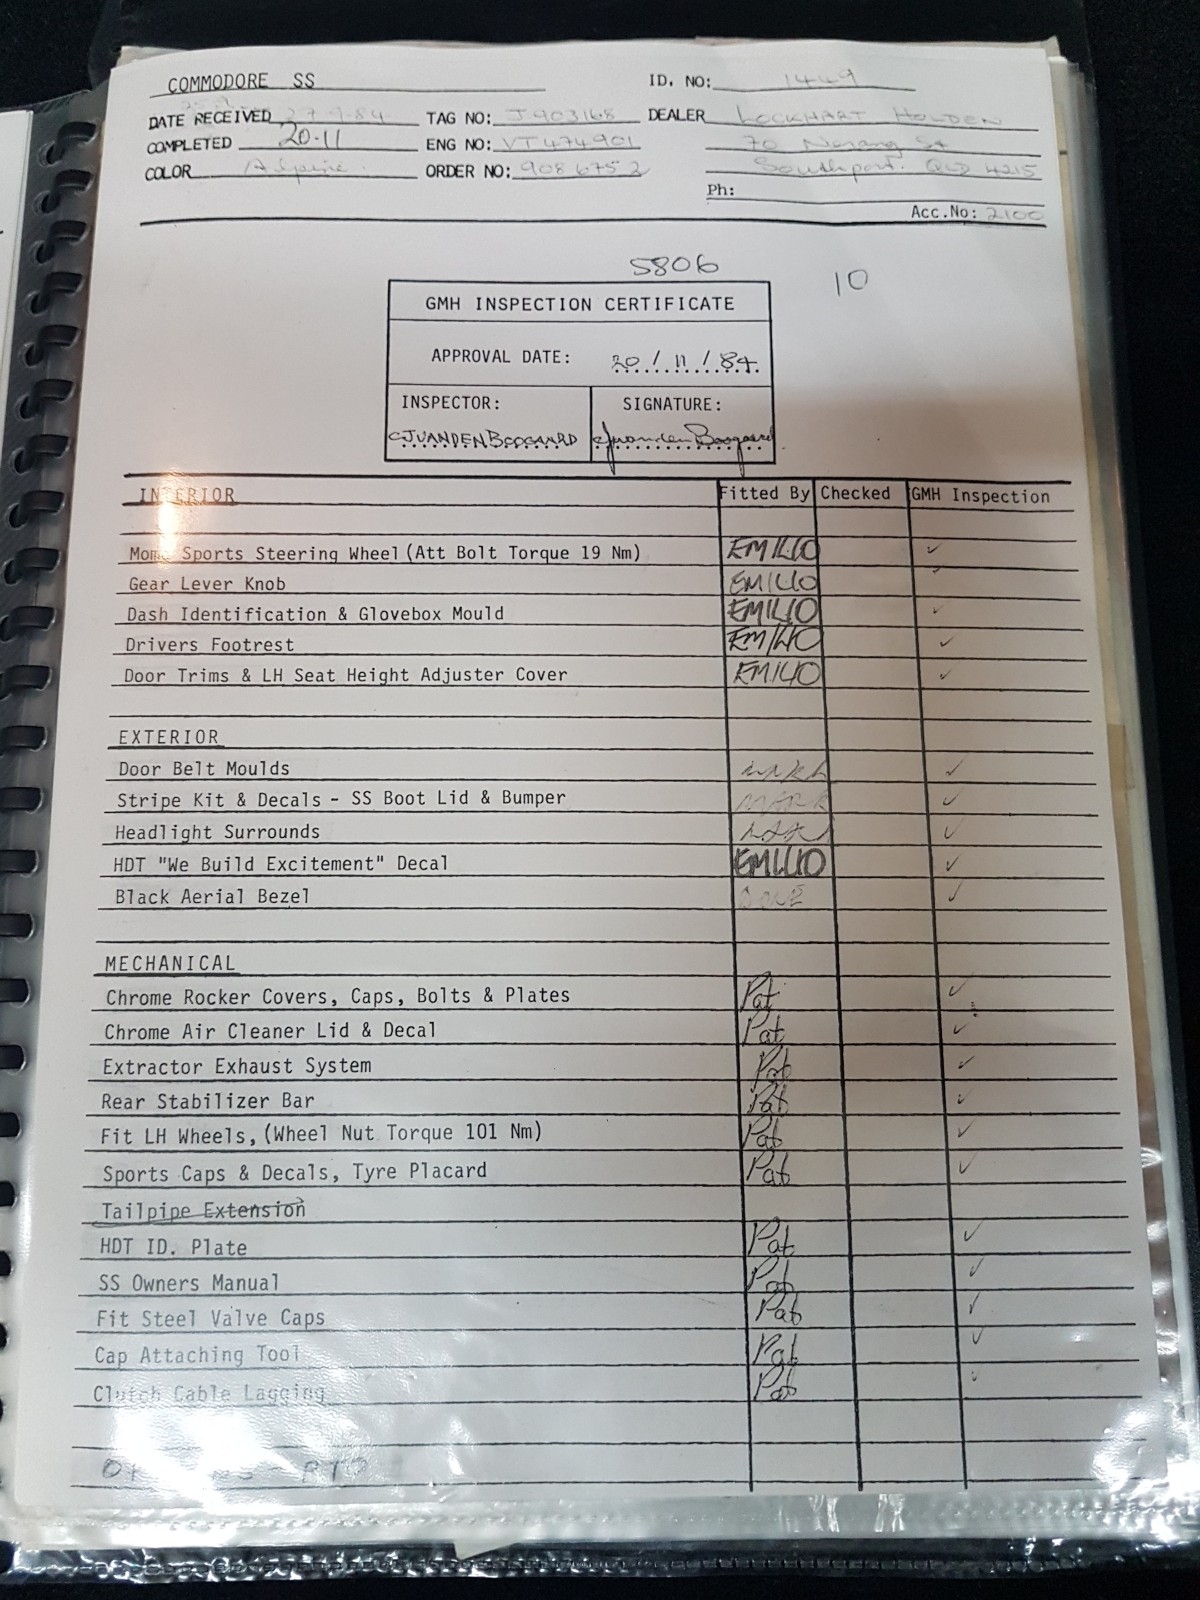 COMMODORE SS ID. NO: 1449
DATE RECEIVED 27-9-84 TAG NO: J903168 DEALER LOCKHART HOLDEN
COMPLETED 20-11 ENG NO: VT474901 70 Nerang St
COLOR Alpine ORDER NO: 9086752 Southport. QLD 4215
Ph:
Acc.No: 2100
5806
10
GMH INSPECTION CERTIFICATE
APPROVAL DATE: 20/11/84
INSPECTOR: SIGNATURE:
CJVANDENBOOGAARD CJvandenBoogaard
INTERIOR Fitted By Checked GMH Inspection
Momo Sports Steering Wheel (Att Bolt Torque 19 Nm) EMILIO ✓
Gear Lever Knob EMILIO ✓
Dash Identification & Glovebox Mould EMILIO ✓
Drivers Footrest EMILIO ✓
Door Trims & LH Seat Height Adjuster Cover EMILIO ✓
EXTERIOR
Door Belt Moulds ✓
Stripe Kit & Decals - SS Boot Lid & Bumper MARK ✓
Headlight Surrounds ✓
HDT "We Build Excitement" Decal EMILIO ✓
Black Aerial Bezel DONE ✓
MECHANICAL
Chrome Rocker Covers, Caps, Bolts & Plates Pat ✓
Chrome Air Cleaner Lid & Decal Pat ✓
Extractor Exhaust System Pat ✓
Rear Stabilizer Bar Pat ✓
Fit LH Wheels, (Wheel Nut Torque 101 Nm) Pat ✓
Sports Caps & Decals, Tyre Placard Pat ✓
Tailpipe Extension
HDT ID. Plate Pat ✓
SS Owners Manual Pat ✓
Fit Steel Valve Caps Pat ✓
Cap Attaching Tool Pat ✓
Clutch Cable Lagging Pat ✓